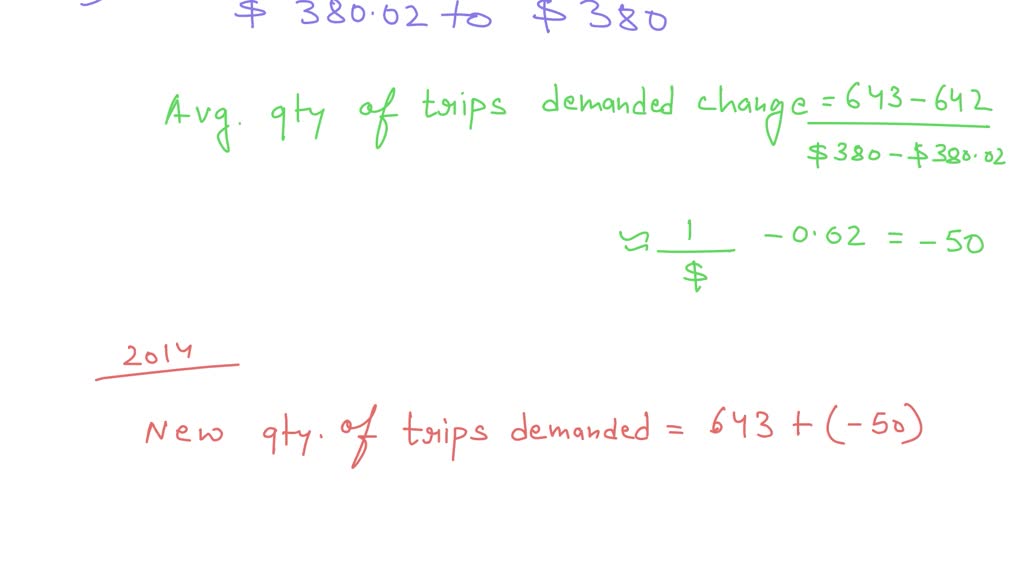 $ 380.02 to $ 380
Avg. qty of trips demanded change = 643 - 642
$ 380 - $ 380.02
≈ 1 - 0.02 = - 50
$
2014
New qty. of trips demanded = 643 + (- 50)